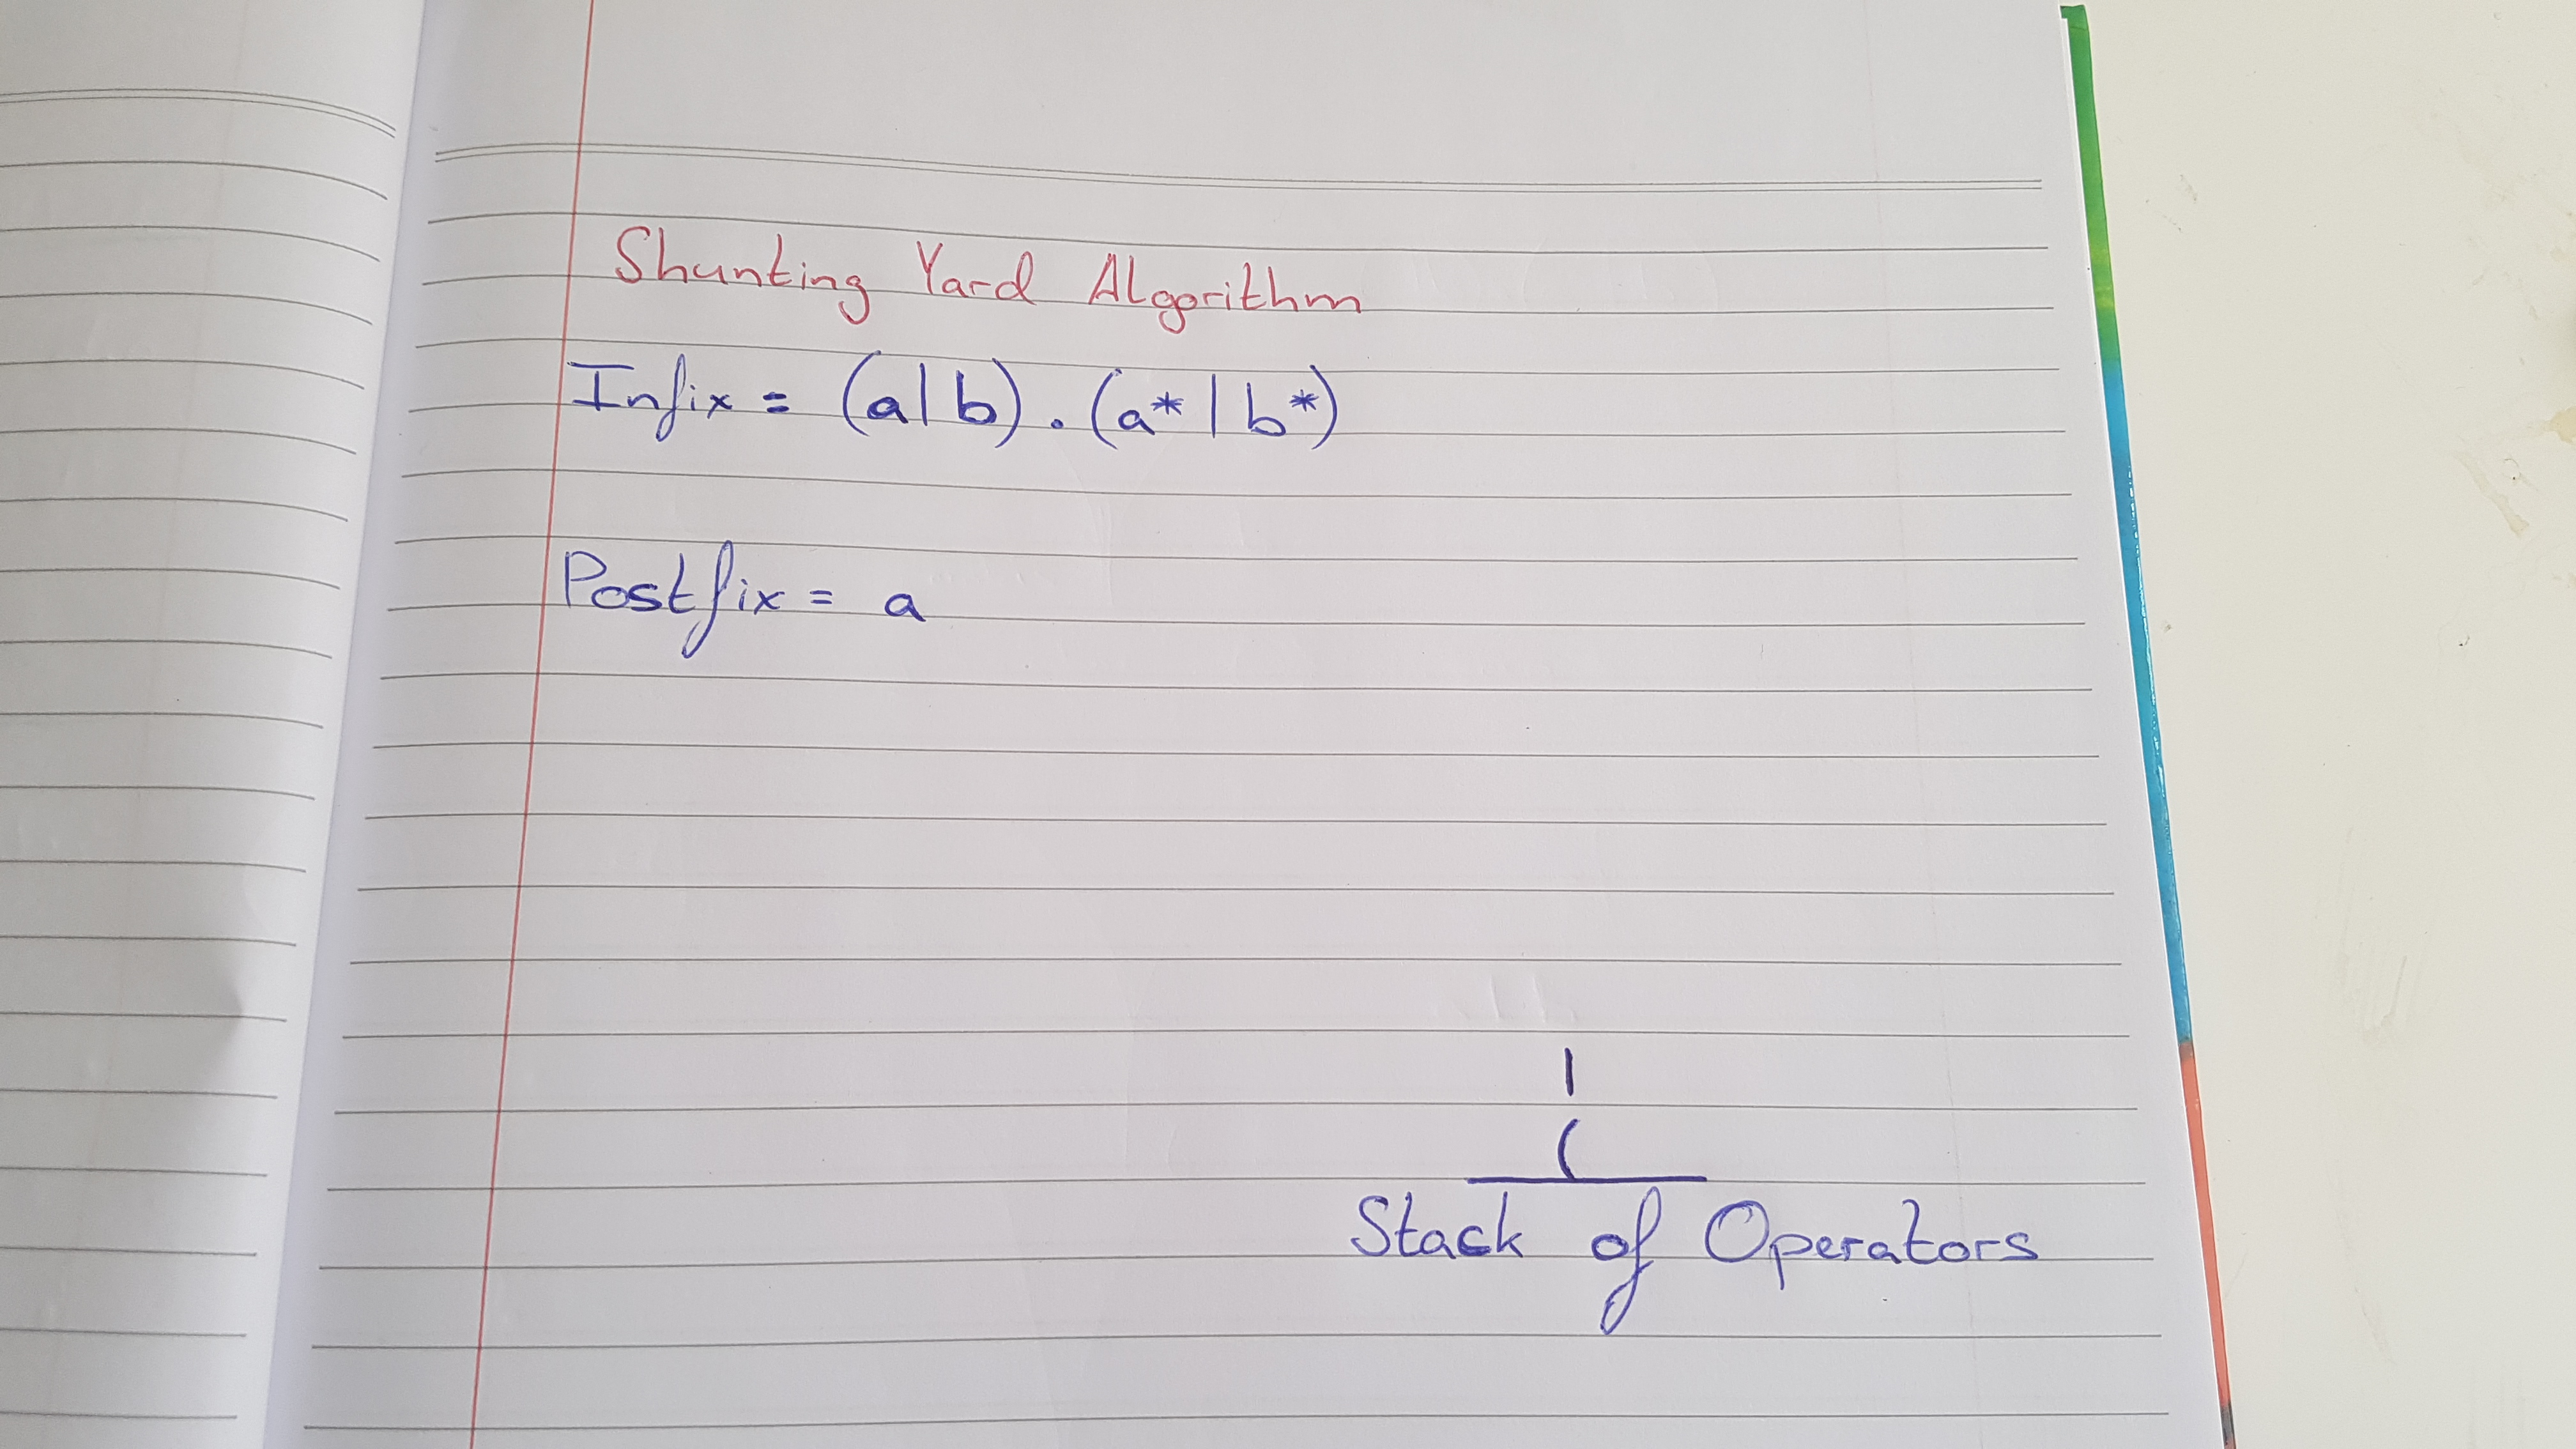 Shunting Yard Algorithm
Infix = (a|b).(a*|b*)
Postfix = a
|
(
Stack of Operators